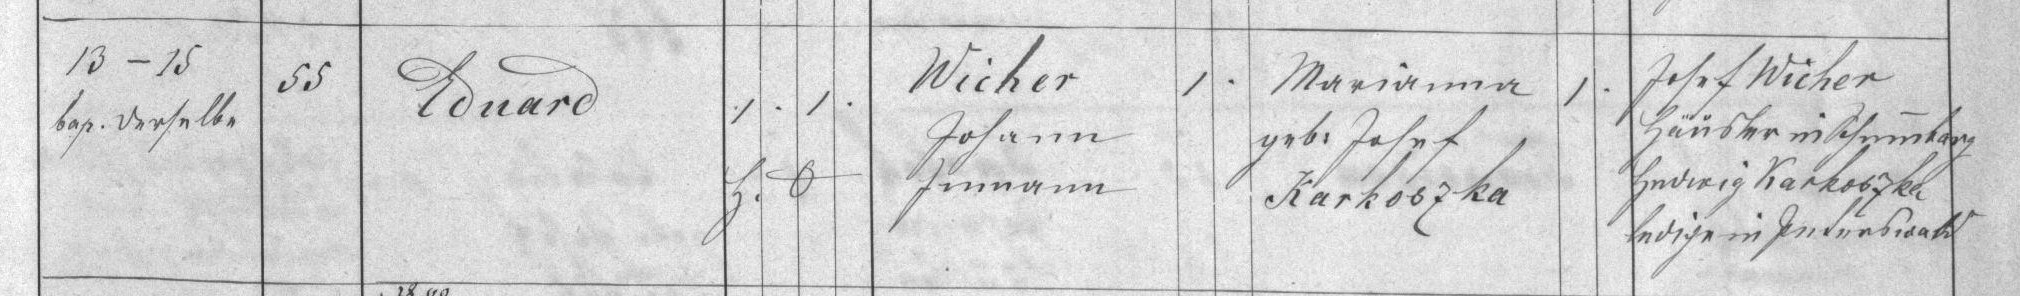 13 – 15
bap. derselbe
55
Eduard
1. 1.
H.
Wicher
Johann
Inmann
1.
Marianna
geb: Josef
Karkoszka
1.
Josef Wicher
Häusler in Schumbarg
Hedwig Karkoszka
ledige in Peterswald